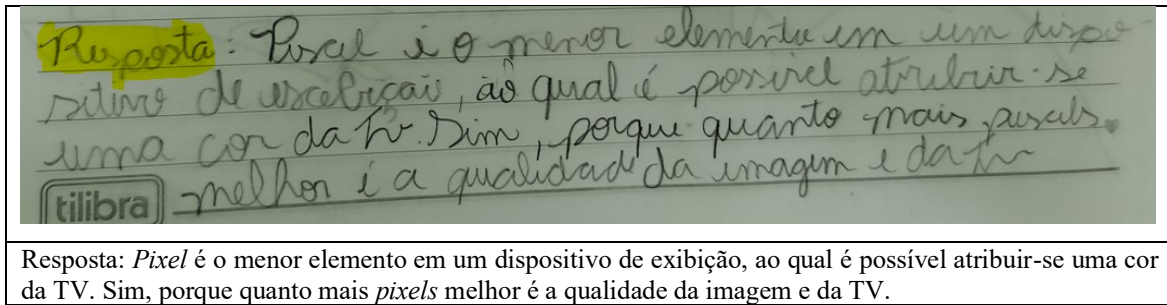 Resposta: Pixcel é o menor elemento em um dispo-
sitivo de excebiçaõ, aô qual é possivel atribuir-se
uma cor da tv. Sim, porque quanto mais pixcels
tilibra melhor é a qualidade da imagem e da tv
Resposta: Pixel é o menor elemento em um dispositivo de exibição, ao qual é possível atribuir-se uma cor
da TV. Sim, porque quanto mais pixels melhor é a qualidade da imagem e da TV.